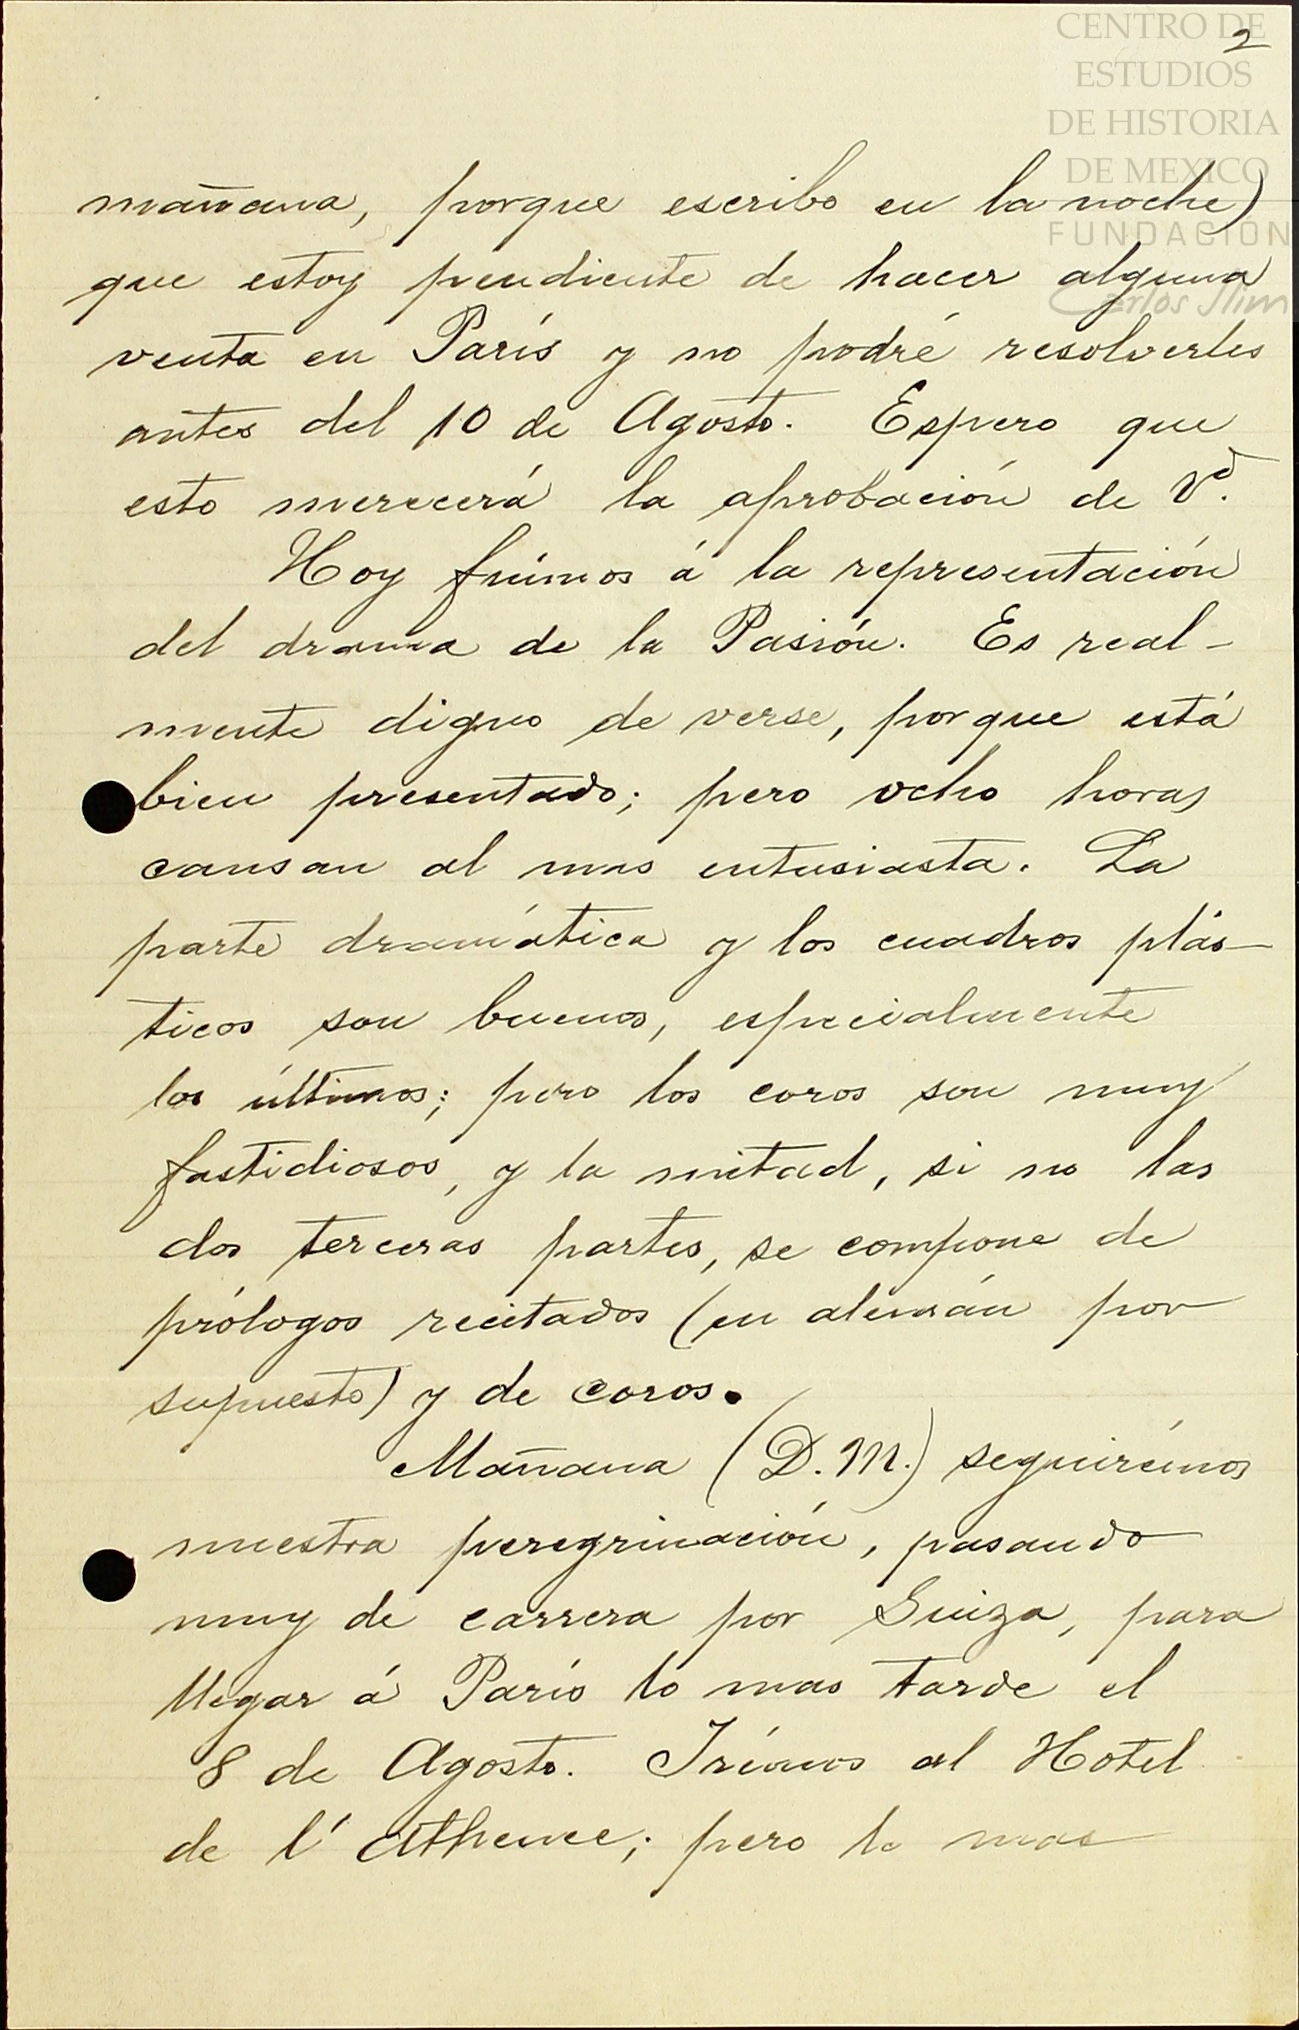 CENTRO DE
ESTUDIOS
DE HISTORIA
DE MEXICO
FUNDACIÓN
Carlos Slim
2
mañana, porque escribo en la noche)
que estoy pendiente de hacer alguna
venta en París y no podré resolverles
antes del 10 de Agosto. Espero que
esto merecerá la aprobación de Vd.
Hoy fuímos á la representación
del drama de la Pasión. Es real-
mente digno de verse, porque está
bien presentado; pero ocho horas
cansan al mas entusiasta. La
parte dramática y los cuadros plás-
ticos son buenos, especialmente
los últimos; pero los coros son muy
fastidiosos, y la mitad, si no las
dos terceras partes, se compone de
prólogos recitados (en alemán por
supuesto) y de coros.
Mañana (D. M.) seguirémos
nuestra peregrinación, pasando
muy de carrera por Suiza, para
llegar á París lo mas tarde el
8 de Agosto. Irémos al Hotel
de l' Athenee; pero lo mas